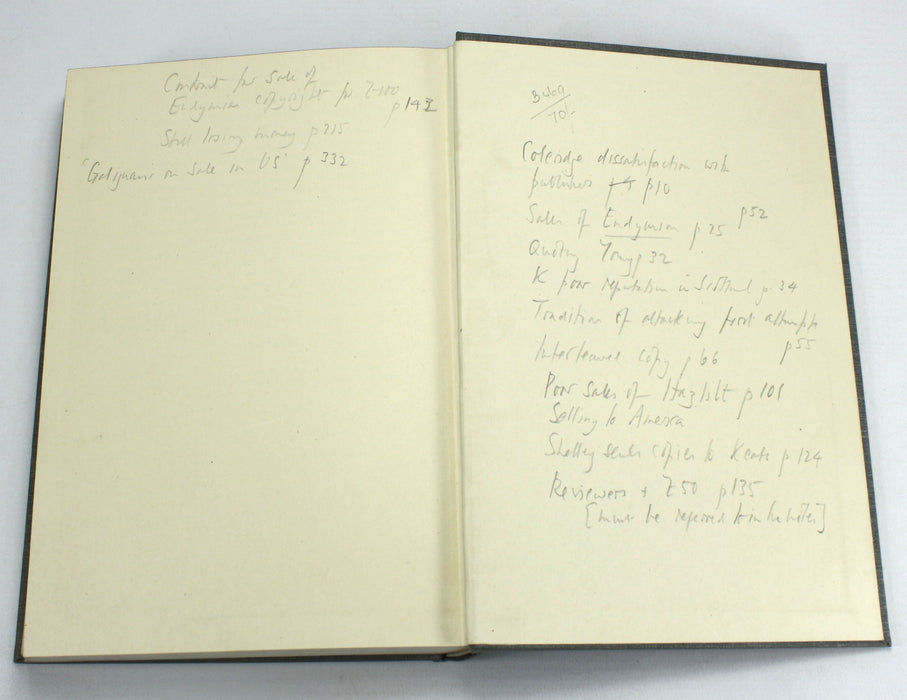 Contract for sale of
Endymion copyright for £100
p 142
Still losing money p 215
'Galignani on sale in US' p 332
70/-
Coleridge dissatisfaction with
publishers p10
Sales of Endymion p 25 p52
Quoting p 32
K poor reputation in Scotland p 34
Tradition of attacking first attempts
p55
Interleaved copy p 66
Poor sales of Hazlitt p 101
Selling to America
Shelley sends copies to Keats p 124
Reviewers + £50 p135
[must be referred to in the notes]